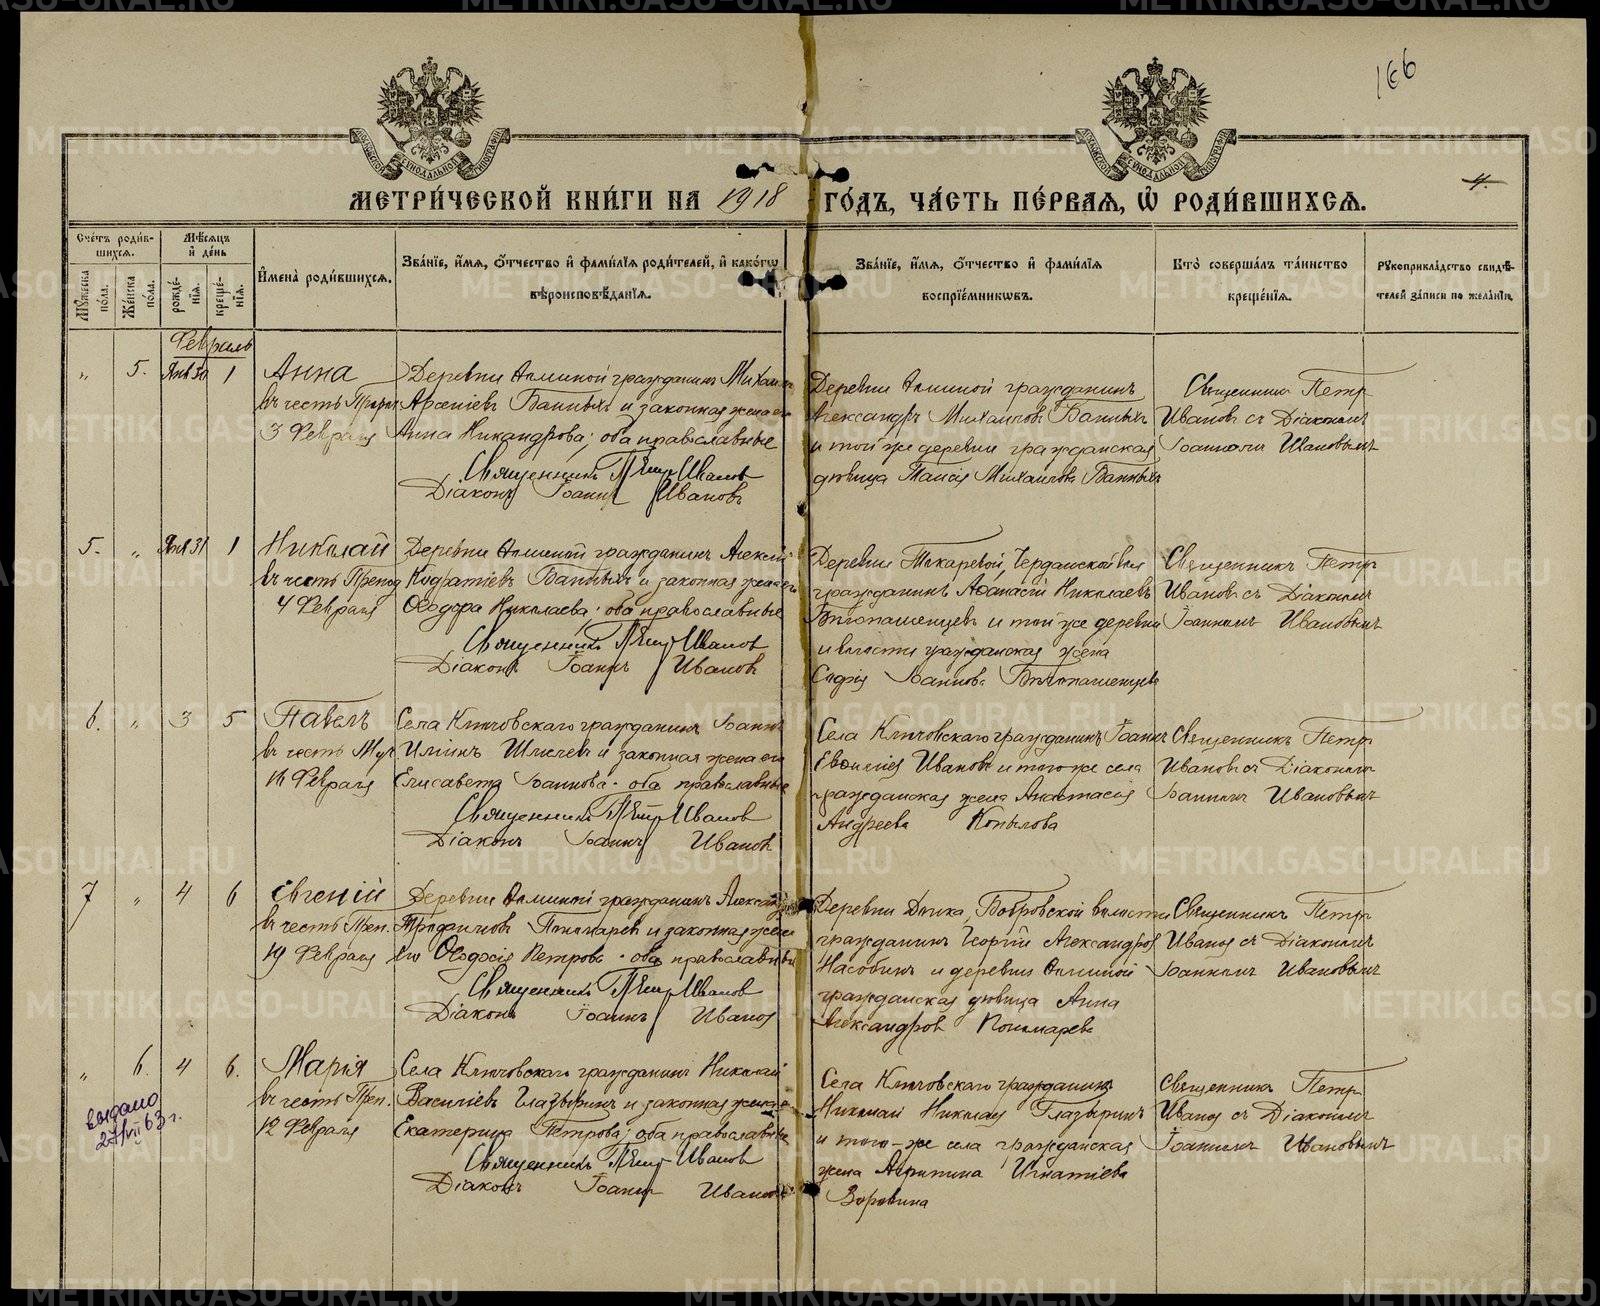 166
МЕТРИ́ЧЕСКОЙ КНИ́ГИ НА 1918 ГО́ДЪ, ЧА́СТЬ ПЕ́РВАЯ, Ѽ РОДИ́ВШИХСЯ.
4.
Сче́тъ роди́вшихся.
Мѣ́сяцъ и҆ де́нь
И҆мена̀ роди́вшихся.
Зва́нїе, и҆́мя, ѻ҆́тчество и҆ фами́лїя роди́телей, и҆ како́гѡ вѣроисповѣ́данїя.
Зва́нїе, и҆́мя, ѻ҆́тчество и҆ фами́лїя воспрїе́мникѡвъ.
Кто̀ соверша́лъ та́инство креще́нїя.
Рꙋкоприкла́дство свидѣ́телей за́писи по жела́нїю.
Мꙋ́жеска по́ла.
Же́нска по́ла.
рожде́нїя.
креще́нїя.
Февраль
" 5. Янв 30 1 Анна
въ честь Прор.
3 Февраля
Деревни гражданинъ Михаилъ
Арсеніевъ Банныхъ и законная жена его
Анна Никандрова; оба православные
Священникъ Петръ Иванов
Діаконъ Іоаннъ Ивановъ
Деревни гражданинъ
Александръ Михаиловъ Банныхъ
и той же деревни гражданская
дѣвица Таисія Михаилова Банныхъ
Священникъ Петръ
Ивановъ съ Діакономъ
Іоанномъ Ивановымъ
5. " Янв 31 1 Николай
въ честь Препод
4 Февраля
Деревни гражданинъ Алексій
Кодратіевъ Банныхъ и законная жена его
Ѳеодора Николаева; оба православные
Священникъ Петръ Иванов
Діаконъ Іоаннъ Иванов
Деревни Токаревой,
гражданинъ Аѳанасій Николаевъ
и той же деревни
и волости гражданская жена
Софія Іоаннова
Священникъ Петръ
Ивановъ съ Діакономъ
Іоанномъ Ивановымъ
6. " 3 5 Павелъ
въ честь Муч.
16 Февраля
Села Ключовскаго гражданинъ Іоаннъ
Илiинъ и законная жена его
Елисавета Іоаннова; оба православные
Священникъ Петръ Иванов
Діаконъ Іоаннъ Иванов
Села Ключовскаго гражданинъ Іоаннъ
Евѳиміевъ Ивановъ и того же села
гражданская жена Анастасія
Андреева Копылова
Священникъ Петръ
Ивановъ съ Діакономъ
Іоанномъ Ивановымъ
7 " 4 6 Евгеній
въ честь Преп.
19 Февраля
Деревни гражданинъ Александръ
Трофимовъ Пономаревъ и законная жена
его Ѳеодосія Петрова; оба православные
Священникъ Петръ Иванов
Діаконъ Іоаннъ Иванов
Деревни Бобровской волости
гражданинъ Георгій Александровъ
Насобинъ и деревни
гражданская дѣвица Анна
Александрова Пономарева
Священникъ Петръ
Ивановъ съ Діакономъ
Іоанномъ Ивановымъ
" 6. 4 6. Марія
въ честь Преп.
12 Февраля
Села Ключовскаго гражданинъ Николай
Василіевъ Глазыринъ и законная жена его
Екатерина Петрова; оба православные
Священникъ Петръ Иванов
Діаконъ Іоаннъ Иванов
Села Ключовскаго гражданинъ
Николай Николаев Глазыринъ
и того-же села гражданская
жена Агрипина Игнатіева
Зоровнина
Священникъ Петръ
Ивановъ съ Діакономъ
Іоанномъ Ивановымъ
выдано
27/VII 63 г.
METRIKI.GASO-URAL.RU